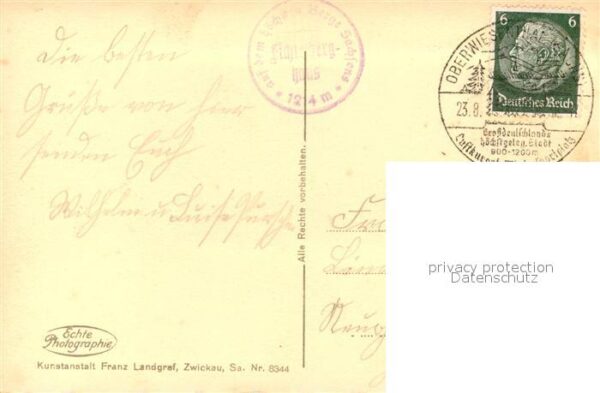 Die besten
Grüße von hier
senden Euch
Wilhelm u Luise
auf dem höchsten Berge Sachsens
Fichtelberg-
haus
* 1214 m *
6 6
Deutsches Reich
23.8.
Großdeutschlands
höchstgeleg. Stadt
900-1200m
Luftkurort
Alle Rechte vorbehalten.
privacy protection
Datenschutz
Echte
Photographie
Kunstanstalt Franz Landgraf, Zwickau, Sa. Nr. 8344